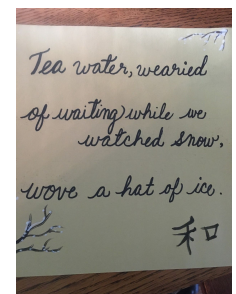 Tea water, wearied
of waiting while we
watched snow,
wove a hat of ice.
和